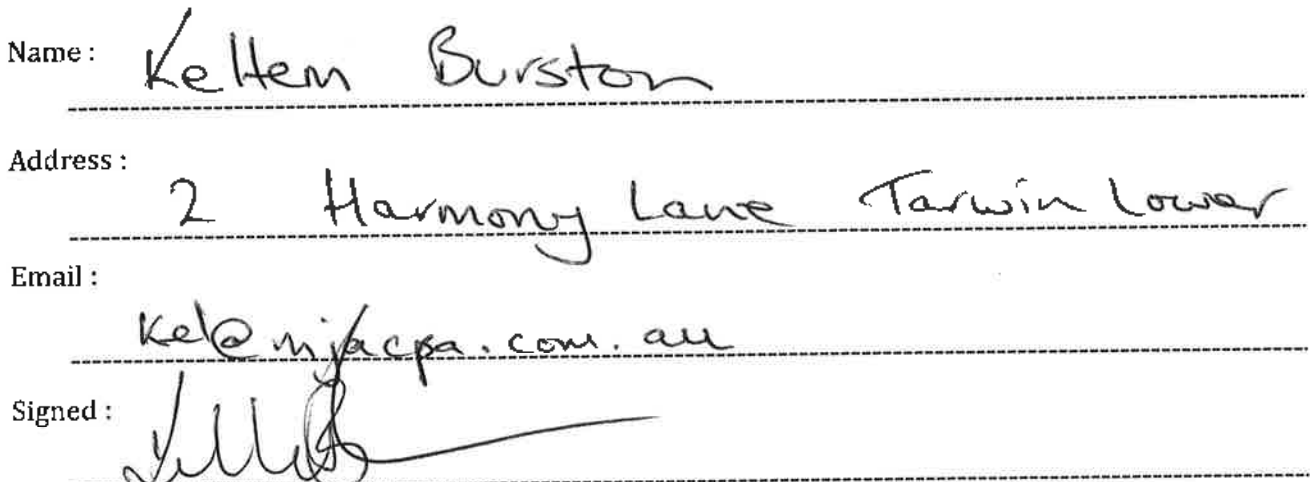 Name : Keltem Burston
Address : 2 Harmony Lane Tarwin Lower
Email : kel@mjacpa.com.au
Signed :